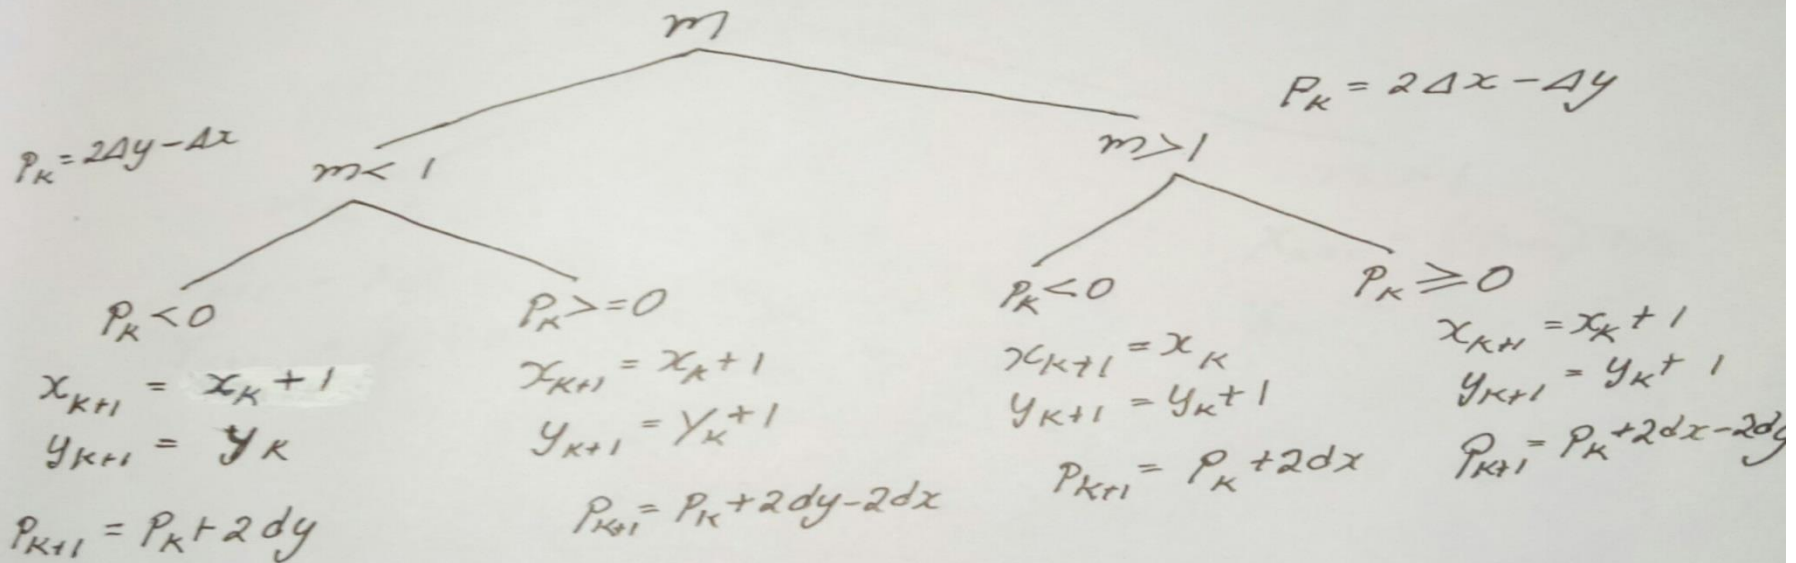 m
P_K = 2Δx - Δy
P_K = 2Δy - Δx
m < 1
m > 1
P_K < 0
P_K >= 0
P_K < 0
P_K ≥ 0
x_{K+1} = x_K + 1
y_{K+1} = y_K
P_{K+1} = P_K + 2dy
x_{K+1} = x_K + 1
y_{K+1} = y_K + 1
P_{K+1} = P_K + 2dy - 2dx
x_{K+1} = x_K
y_{K+1} = y_K + 1
P_{K+1} = P_K + 2dx
x_{K+1} = x_K + 1
y_{K+1} = y_K + 1
P_{K+1} = P_K + 2dx - 2dy